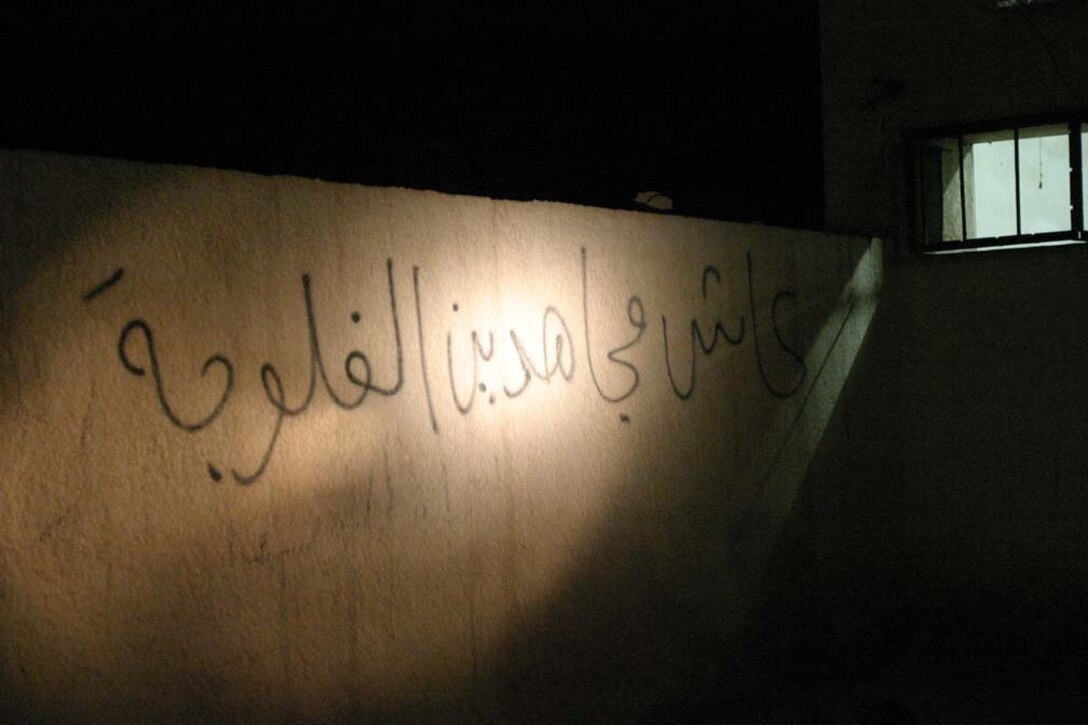 عاش مجاهدين الفلوجة